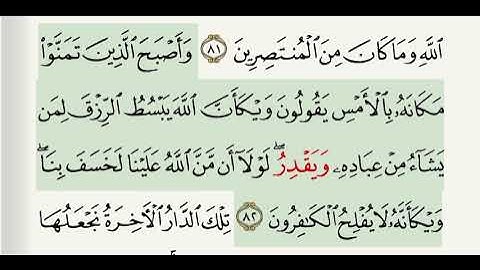 ٱللَّهِ وَمَا كَانَ مِنَ ٱلْمُنتَصِرِينَ ٨١ وَأَصْبَحَ ٱلَّذِينَ تَمَنَّوْا۟
مَكَانَهُۥ بِٱلْأَمْسِ يَقُولُونَ وَيْكَأَنَّ ٱللَّهَ يَبْسُطُ ٱلرِّزْقَ لِمَن
يَشَآءُ مِنْ عِبَادِهِۦ وَيَقْدِرُ ۖ لَوْلَآ أَن مَّنَّ ٱللَّهُ عَلَيْنَا لَخَسَفَ بِنَا ۖ
وَيْكَأَنَّهُۥ لَا يُفْلِحُ ٱلْكَٰفِرُونَ ٨٢ تِلْكَ ٱلدَّارُ ٱلْءَاخِرَةُ نَجْعَلُهَا